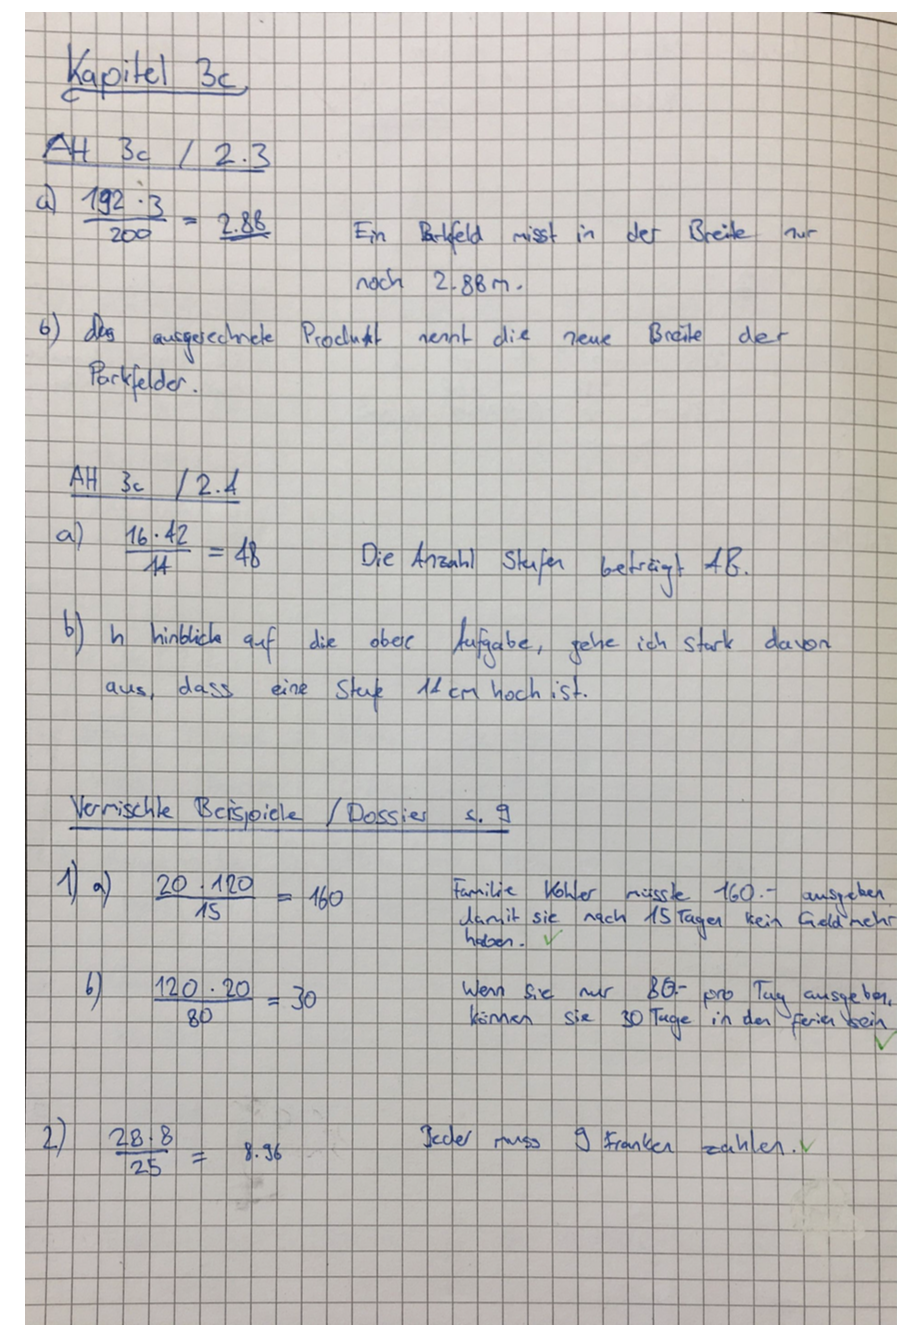 Kapitel 3c
AH 3c / 2.3
a) 192 · 3 / 200 = 2.88 Ein Parkfeld misst in der Breite nur
noch 2.88m.
b) das ausgerechnete Produkt nennt die neue Breite der
Parkfelder.
AH 3c / 2.1
a) 16 · 42 / 14 = 48 Die Anzahl Stufen beträgt 48.
b) h hinblick auf die obere Aufgabe, gehe ich stark davon
aus, dass eine Stufe 14cm hoch ist.
Vermischte Beispiele / Dossier s. 9
1) a) 20 · 120 / 15 = 160 Familie Kohler müsste 160.- ausgeben
damit sie nach 15 Tagen kein Geld mehr
haben. ✓
b) 120 · 20 / 80 = 30 Wenn sie nur 80.- pro Tag ausgeben,
können sie 30 Tage in den ferien sein
✓
2) 28 · 8 / 25 = 8.96 Jeder muss 9 Franken zahlen. ✓